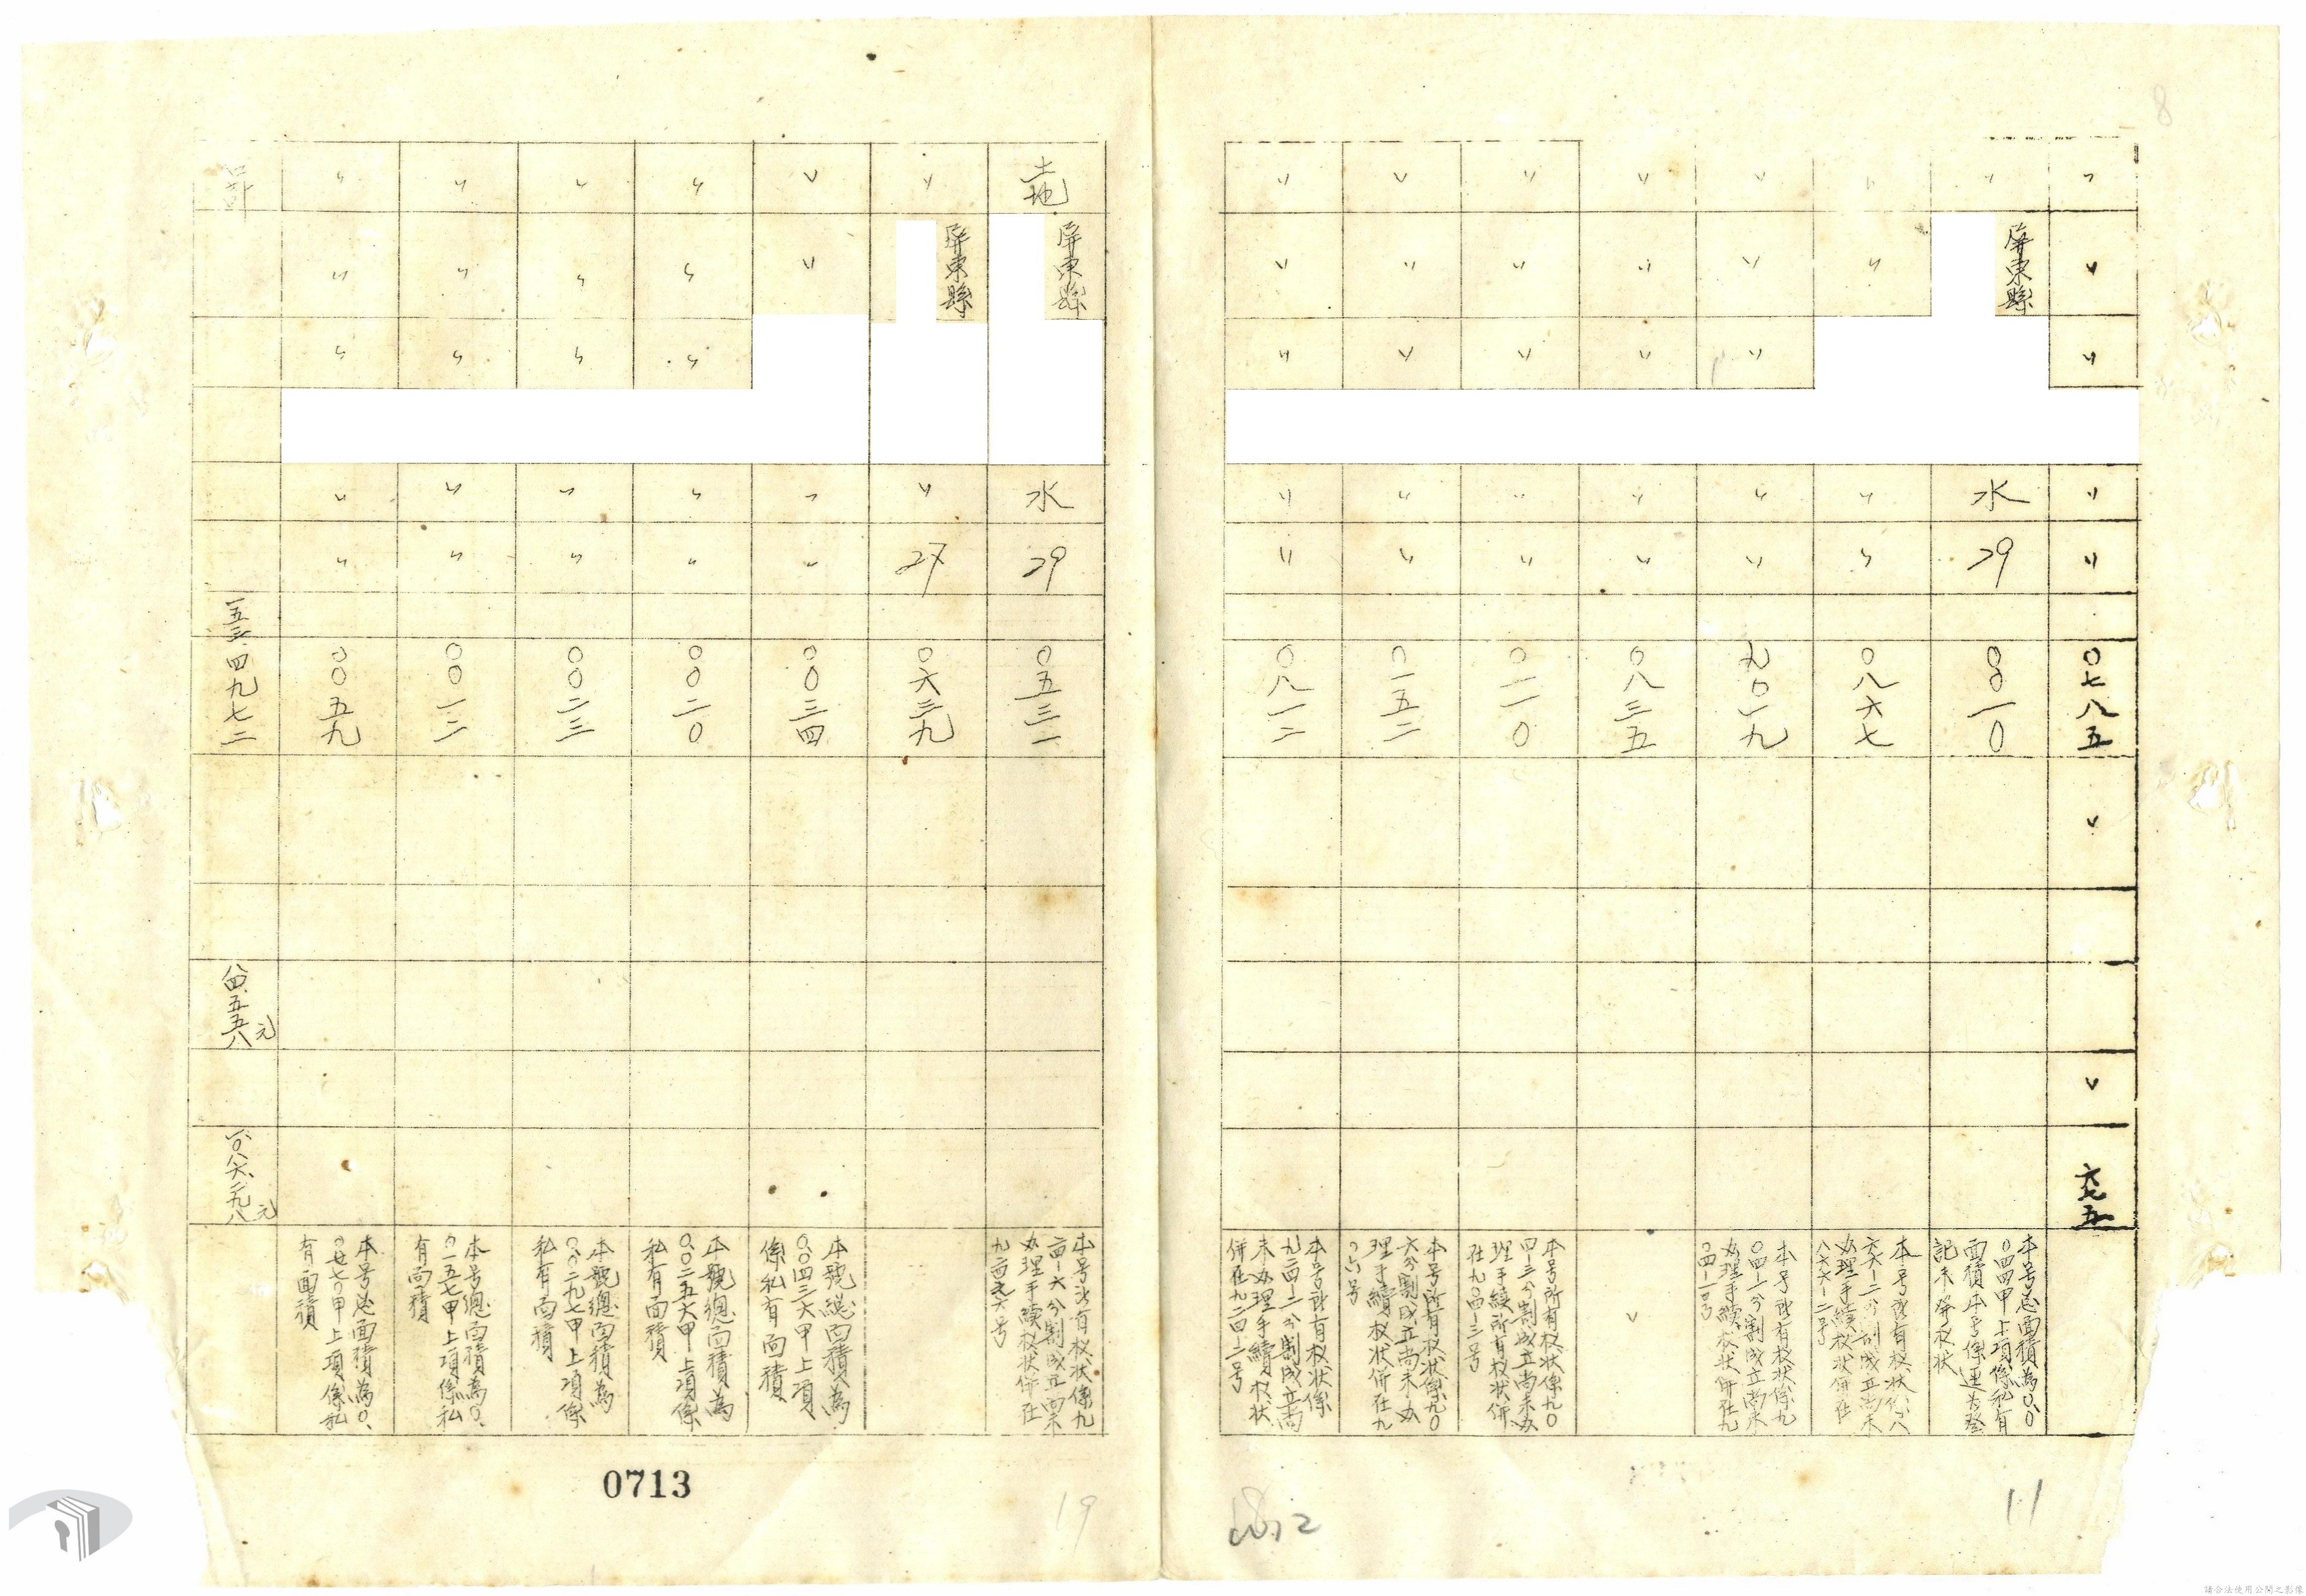 8
〃
〃
〃
〃
〃
〇七八五
〃
〃
六七五
〃
屏東縣
水
29
〇〇一〇
本号总面積為〇.〇
〇四四甲上項係私有
面積本号係更为登
記未発权状
〃
〃
〃
〃
〇八六七
本号所有权状係八
六六-二分割成立尚未
办理手續权状併在
八六六-二号
〃
〃
〃
〃
〃
九〇一九
本号所有权状係九
〇四-一分割成立尚未
办理手續权状併在九
〇四-一号
〃
〃
〃
〃
〃
〇八三五
〃
〃
〃
〃
〃
〃
〇一一〇
本号所有权状係九〇
四-三分割成立尚未办
理手續所有权状併
在九〇四-三号
〃
〃
〃
〃
〃
〇一五二
本号所有权状係九〇
六分割成立尚未办
理手續权状併在九
〇六号
〃
〃
〃
〃
〃
〇八一二
本号所有权状係
九二四-二分割成立尚
未办理手續权状
併在九二四-二号
11
12
土地
屏東縣
水
29
〇五三一
本号所有权状係九
二四-六分割成立尚未
办理手續权状併在
〃
屏東縣
〃
27
〇六三九
〃
〃
〃
〃
〇〇三四
本號總面積為
〇.〇四三六甲上項
係私有面積
〃
〃
〃
〃
〃
〇〇二〇
本號總面積為
〇.〇二五六甲上項係
私有面積
〃
〃
〃
〃
〃
〇〇二三
本號總面積為
〇.〇二九七甲上項係
私有面積
〃
〃
〃
〃
〃
〇〇一二
本号總面積為〇.
〇一五七甲上項係私
有面積
〃
〃
〃
〃
〃
〇〇五九
本号总面積為〇.
〇七七〇甲上項係私
有面積
計
一五三.四九七二
八四.五五八元
一〇.八六.二九八元
0713
19
請合法使用公開之影像